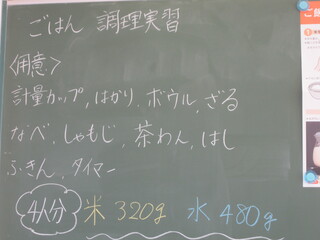 ごはん 調理実習
〈用意〉
計量カップ, はかり, ボウル, ざる
なべ, しゃもじ, 茶わん, はし
ふきん, タイマー
4人分 米 320g 水 480g
ご飯